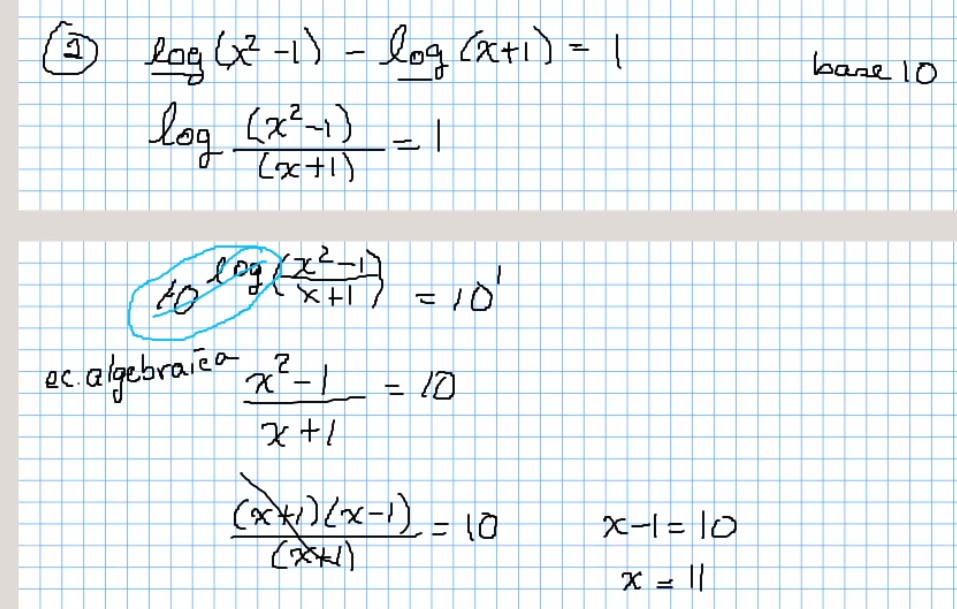 ② log (x² - 1) - log (x+1) = 1 base 10
log (x²-1)/(x+1) = 1
10^log((x²-1)/(x+1)) = 10¹
ec. algebraica (x²-1)/(x+1) = 10
(x+1)(x-1)/(x+1) = 10 x-1=10
x = 11